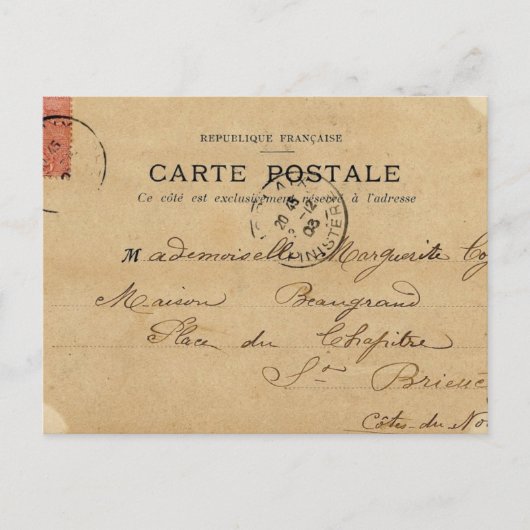 REPUBLIQUE FRANÇAISE
CARTE POSTALE
Ce côté est exclusivement réservé à l'adresse
20 45
2 -12
03
FINISTERE
Mademoiselle Marguerite
Maison Beaugrand
Place du Chapitre
St Brieuc
Côtes-du-No